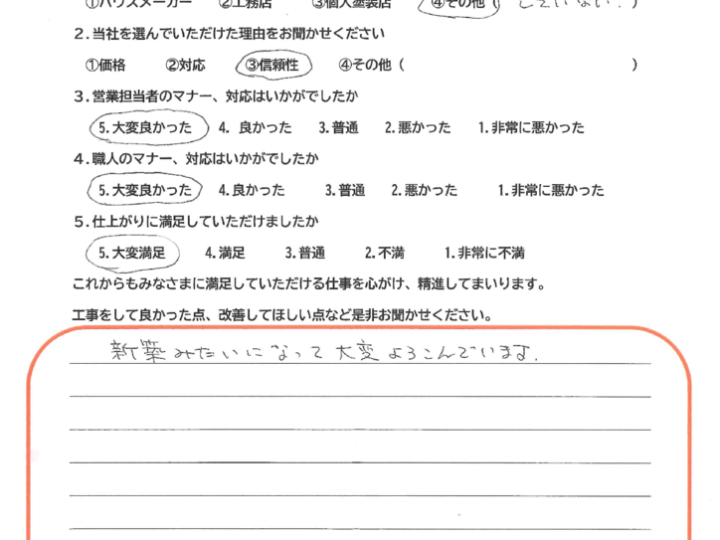 ①ハウスメーカー ②工務店 ③個人塗装店 ④その他( していない. )
2.当社を選んでいただけた理由をお聞かせください
①価格 ②対応 ③信頼性 ④その他( )
3.営業担当者のマナー、対応はいかがでしたか
5.大変良かった 4. 良かった 3.普通 2.悪かった 1.非常に悪かった
4.職人のマナー、対応はいかがでしたか
5.大変良かった 4.良かった 3.普通 2.悪かった 1.非常に悪かった
5.仕上がりに満足していただけましたか
5.大変満足 4.満足 3.普通 2.不満 1.非常に不満
これからもみなさまに満足していただける仕事を心がけ、精進してまいります。
工事をして良かった点、改善してほしい点など是非お聞かせください。
新築みたいになって大変よろこんでいます.